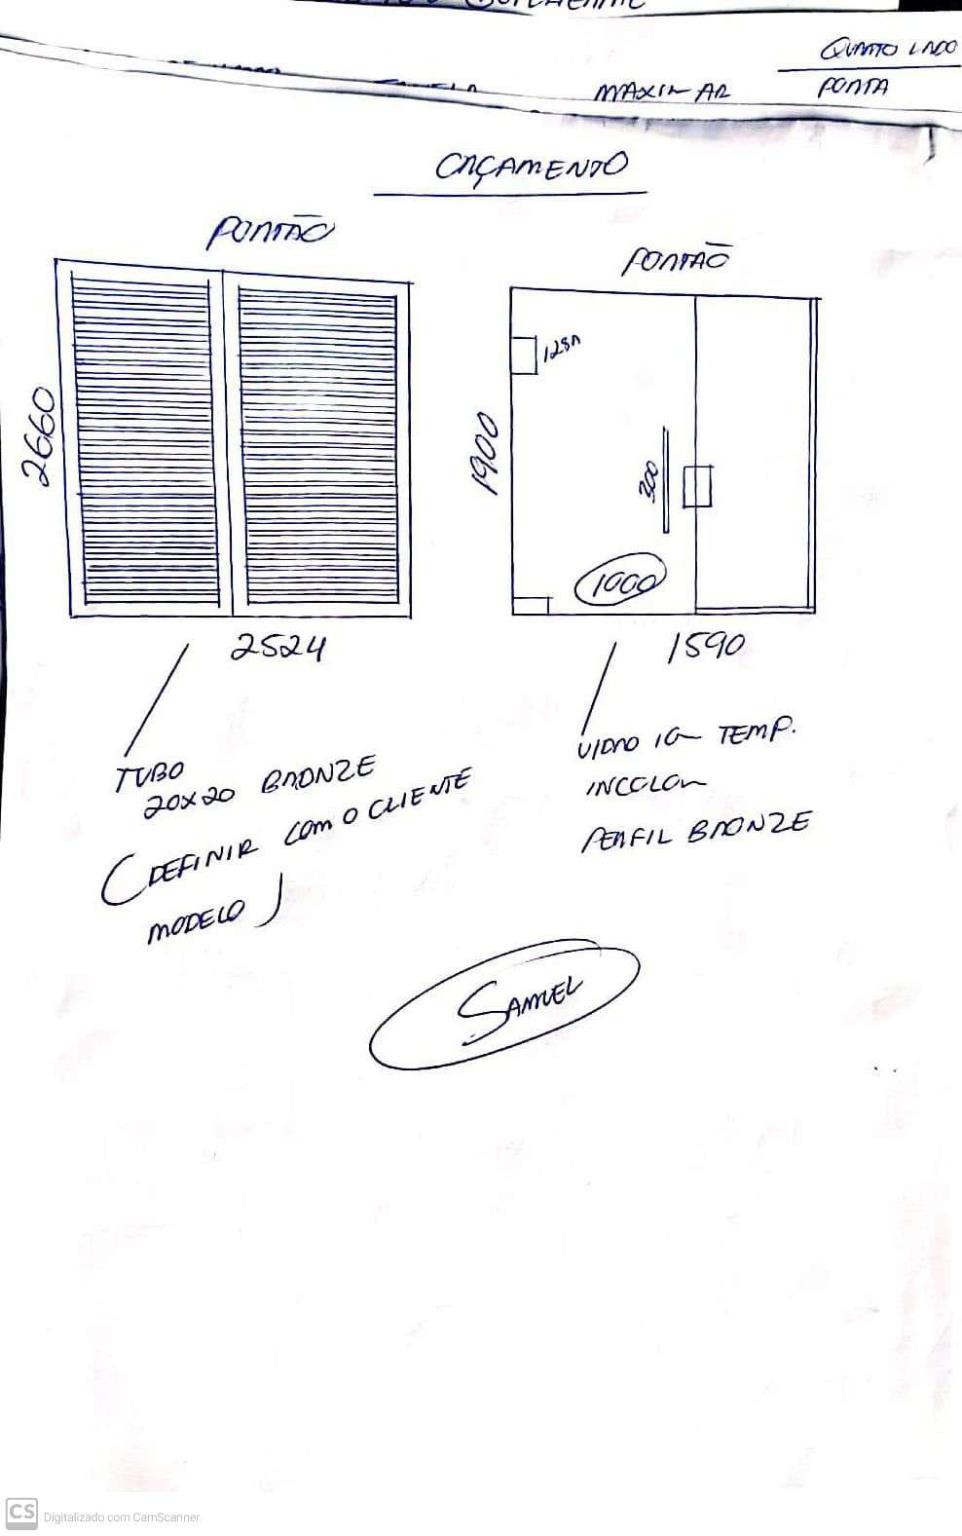 QUARTO LADO
MAXIM AR
PORTA
ORÇAMENTO
PORTÃO
PORTÃO
2660
1900
300
1000
2524
1590
TUBO
20X20 BRONZE
(DEFINIR COM O CLIENTE
MODELO)
VIDRO TEMP.
INCOLOR
PERFIL BRONZE
SAMUEL
CS Digitalizado com CamScanner